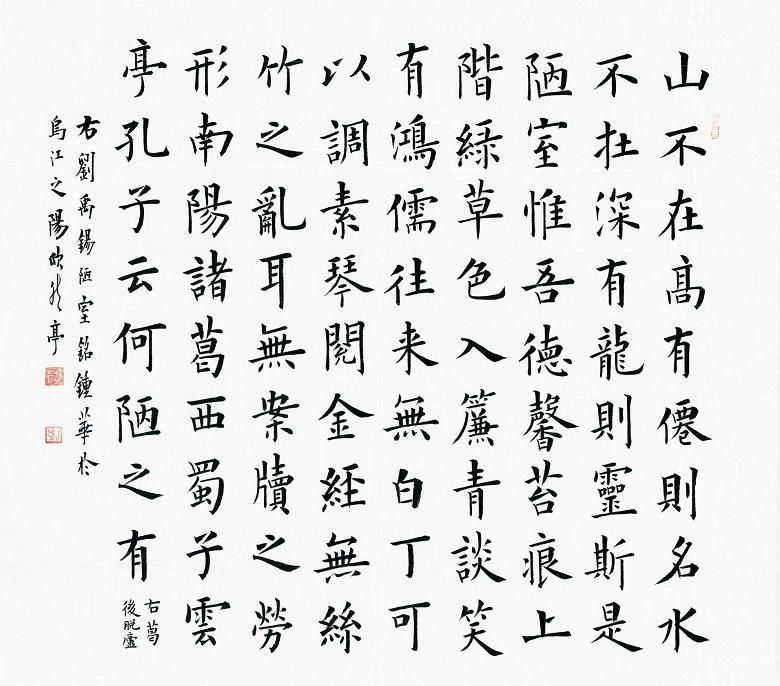 山不在髙有僊則名水
不在深有龍則靈斯是
陋室惟吾德馨苔痕上
階綠草色入簾青談笑
有鴻儒往来無白丁可
以調素琴閱金經無絲
竹之亂耳無案牘之勞
形南陽諸葛西蜀子雲
亭孔子云何陋之有
右葛
後脫廬
右劉禹錫陋室銘鍾華於
烏江之陽亭